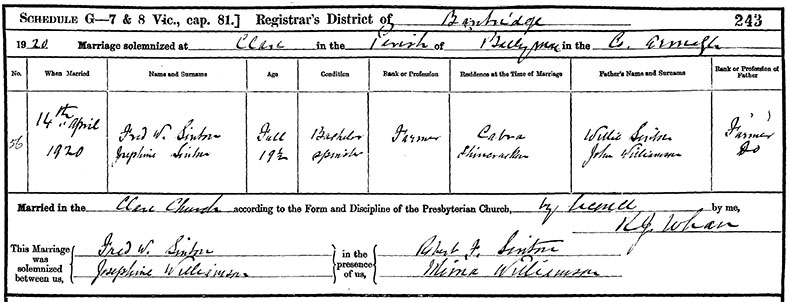 SCHEDULE G—7 & 8 Vic., cap. 81.] Registrar's District of Banbridge 243
1920. Marriage solemnized at Clare in the Parish of Ballymore in the Co. Armagh
No. When Married Name and Surname Age Condition Rank or Profession Residence at the Time of Marriage Father's Name and Surname Rank or Profession of Father
56 14th April 1920 Fred W. Sinton Full Bachelor Farmer Cabra Willie Sinton Farmer
Josephine Sinton 19½ Spinster John Williamson Do
Married in the Clare Church according to the Form and Discipline of the Presbyterian Church, by license by me,
Whan
This Marriage was solemnized between us, Fred W. Sinton in the presence of us, Robert F. Sinton
Josephine Williamson Minna Williamson